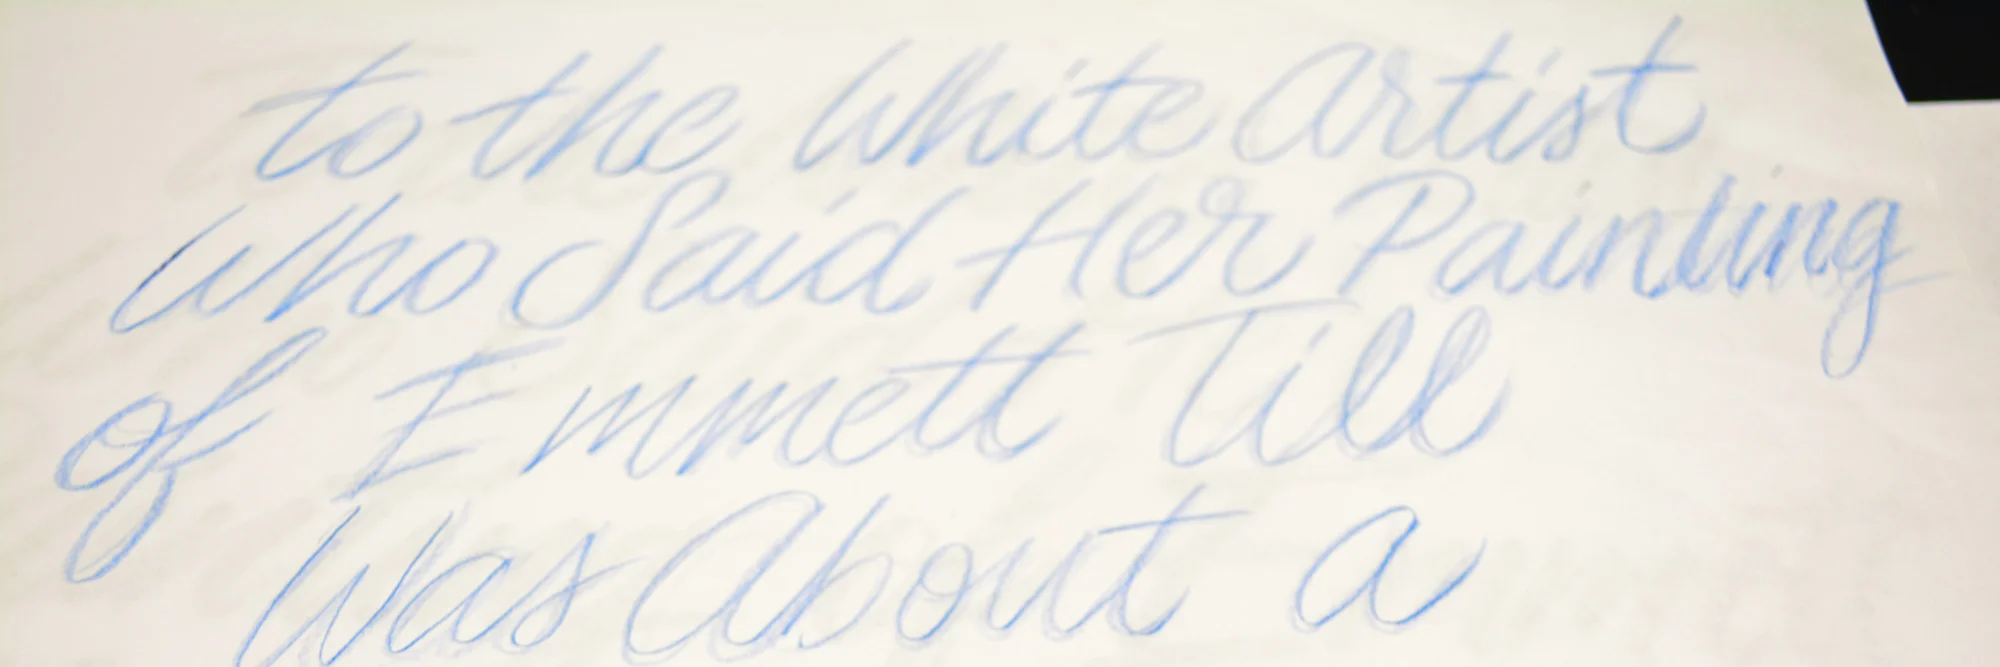 to the White Artist
Who Said Her Painting
of Emmett Till
Was About a